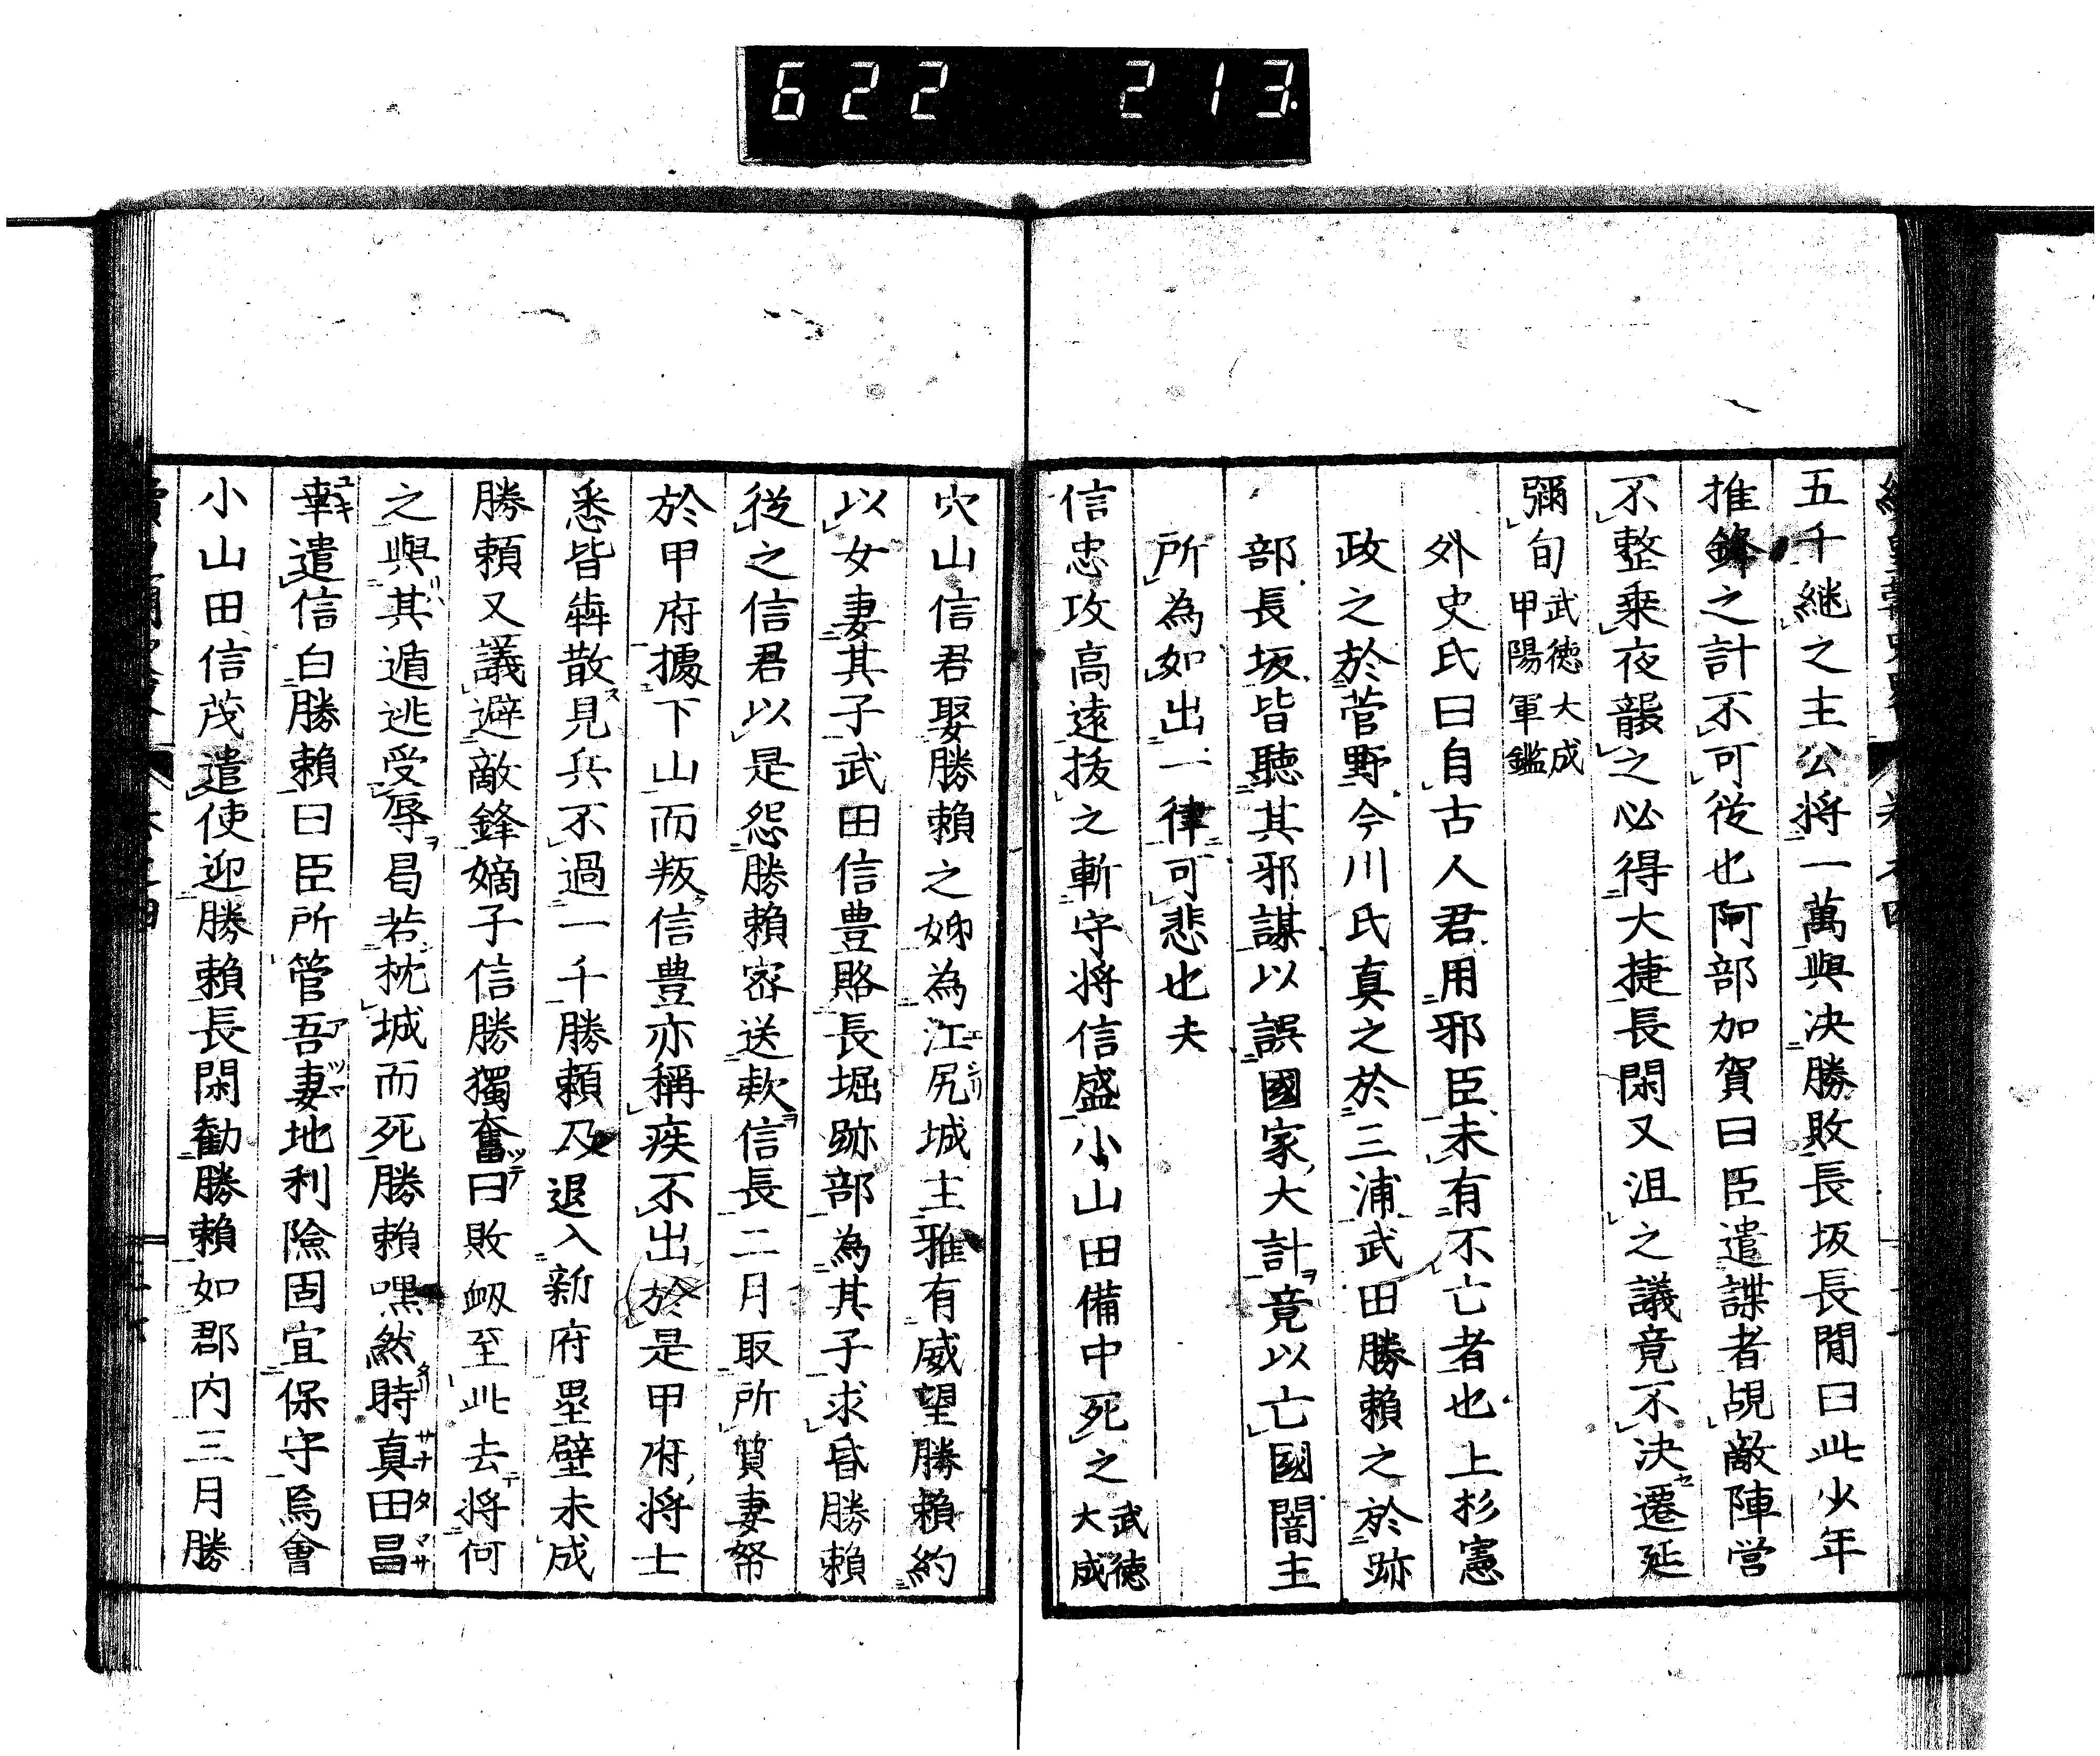 622 213
五千継之主公将一萬與决勝敗長坂長閒曰此少年
推鋒之計不可從也阿部加賀曰臣遣諜者覘敵陣営
不整乗夜襲之必得大捷長閑又沮之議竟不决遷延
彌旬武徳大成甲陽軍鑑
外史氏曰自古人君用邪臣未有不亡者也上杉憲
政之於菅野今川氏真之於三浦武田勝賴之於跡
部長坂皆聽其邪謀以誤國家大計竟以亡國闇主
所為如出一律可悲也夫
信忠攻高遠拔之斬守将信盛小山田備中死之武徳大成
穴山信君娶勝賴之姉為江尻城主雅有威望勝賴約
以女妻其子武田信豊賂長堀跡部為其子求昏勝賴
從之信君以是怨勝賴密送欵信長二月取所質妻帑
於甲府據下山而叛信豊亦稱疾不出於是甲府将士
悉皆犇散見兵不過一千勝賴乃退入新府塁壁未成
勝賴又議避敵鋒嫡子信勝獨奮曰敗衂至此去将何
之與其遁逃受辱曷若枕城而死勝賴嘿然時真田昌
幸遣信白勝賴曰臣所管吾妻地利險固宜保守焉會
小山田信茂遣使迎勝賴長閑勧勝賴如郡内三月勝